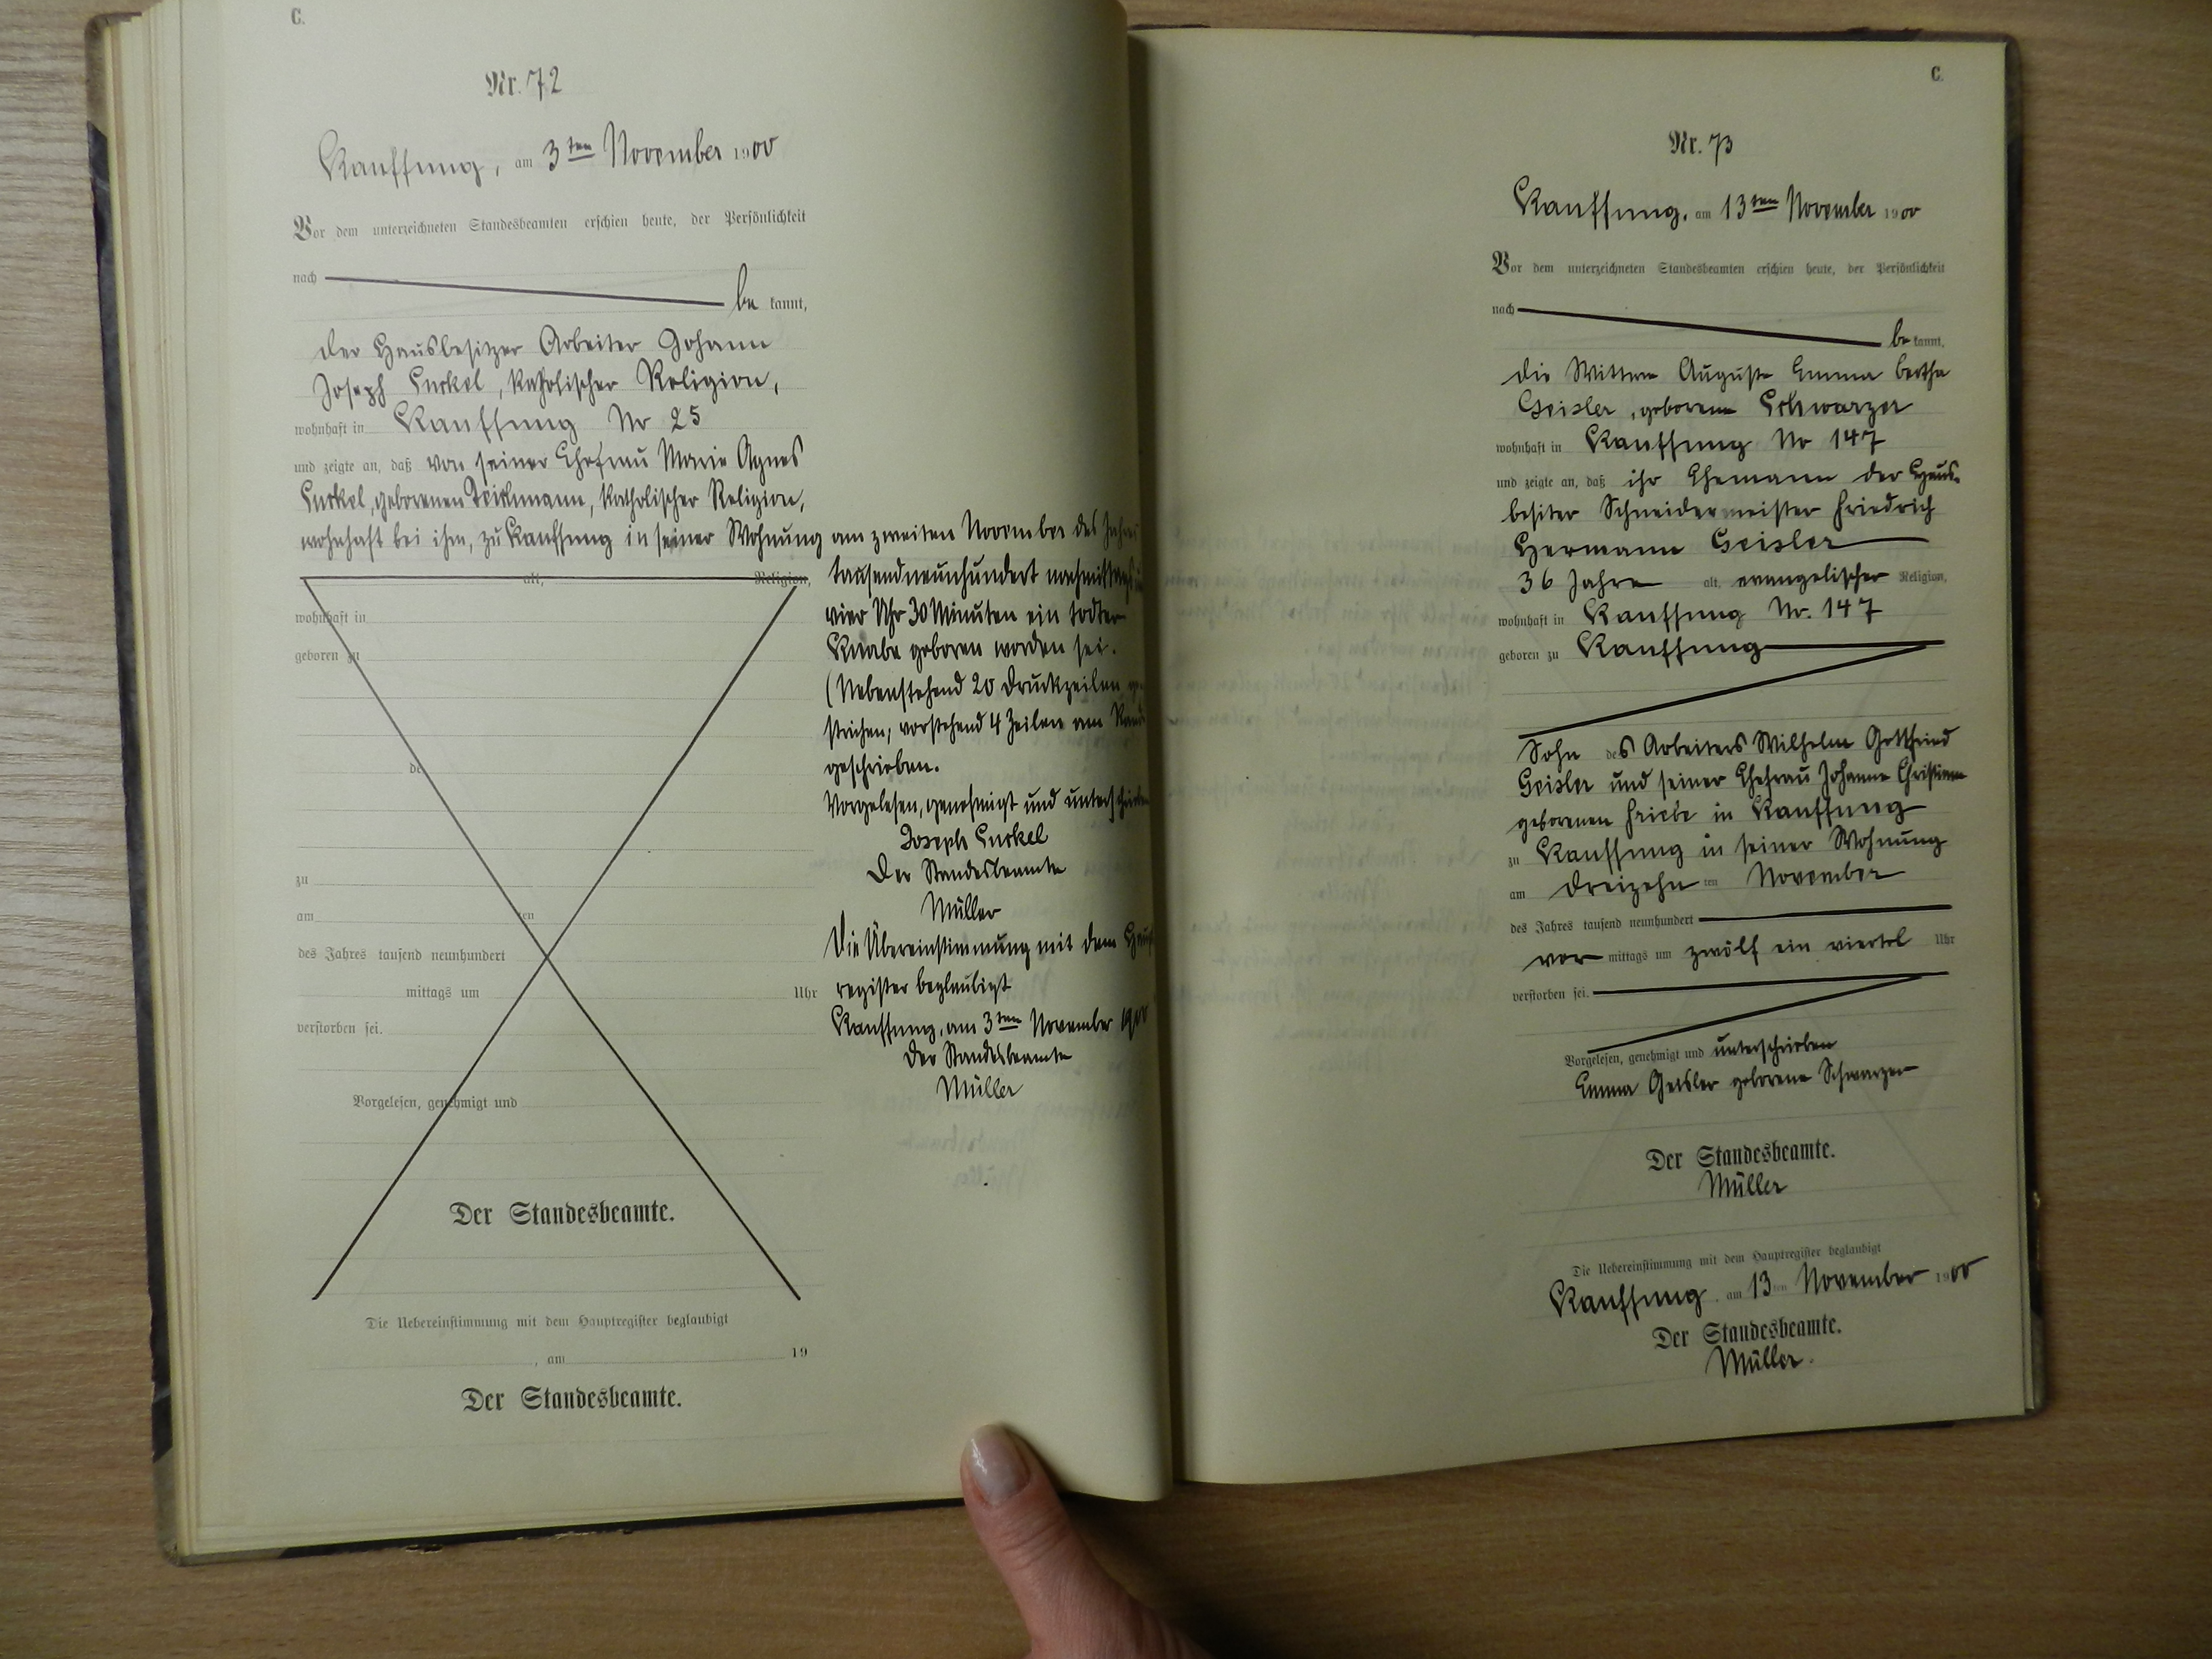 C.
Nr. 72
Kauffung, am 3ten November 1900
Vor dem unterzeichneten Standesbeamten erschien heute, der Persönlichkeit
nach
be kannt,
der Hausbesitzer Arbeiter Johann
Joseph katholischer Religion,
wohnhaft in Kauffung No 25
und zeigte an, daß von seiner Ehefrau Marie Agnes
geborenen Teichmann, katholischer Religion,
wohnhaft bei ihm, zu Kauffung in seiner Wohnung am zweiten November des Jahres
alt, Religion,
tausendneunhundert nachmittags
wohnhaft in
vier Uhr 30 Minuten ein todter
geboren zu
Knabe geboren worden sei.
(Nebenstehend 20 Druckzeilen ge-
strichen, vorstehend 4 Zeilen am Rand
de
geschrieben.
Vorgelesen, genehmigt und unterschrieben
Joseph
zu
Der Standesbeamte
am ten
Müller
des Jahres tausend neunhundert
Die Übereinstimmung mit dem Haupt
mittags um Uhr
register beglaubigt
verstorben sei.
Kauffung, am 3ten November 1900
Der Standesbeamte
Müller
Vorgelesen, genehmigt und
Der Standesbeamte.
Die Uebereinstimmung mit dem Hauptregister beglaubigt
, am 19
Der Standesbeamte.
C.
Nr. 73
Kauffung, am 13ten November 1900
Vor dem unterzeichneten Standesbeamten erschien heute, der Persönlichkeit
nach
be kannt,
die Wittwe Auguste Emma Bertha
Geisler, geborene Schwarzer
wohnhaft in Kauffung No 147
und zeigte an, daß ihr Ehemann der Haus-
besiter Schneidermeister Friedrich
Hermann Geisler
36 Jahre alt, evangelischer Religion,
wohnhaft in Kauffung No. 147
geboren zu Kauffung
Sohn des Arbeiters Wilhelm Gottfried
Geisler und seiner Ehefrau Johanne Christiane
geborenen Friebe in Kauffung
zu Kauffung in seiner Wohnung
am dreizehn ten November
des Jahres tausend neunhundert
vor mittags um zwölf ein viertel Uhr
verstorben sei.
Vorgelesen, genehmigt und unterschrieben
Emma Geisler geborene Schwarzer
Der Standesbeamte.
Müller
Die Uebereinstimmung mit dem Hauptregister beglaubigt
Kauffung, am 13ten November 1900
Der Standesbeamte.
Müller.